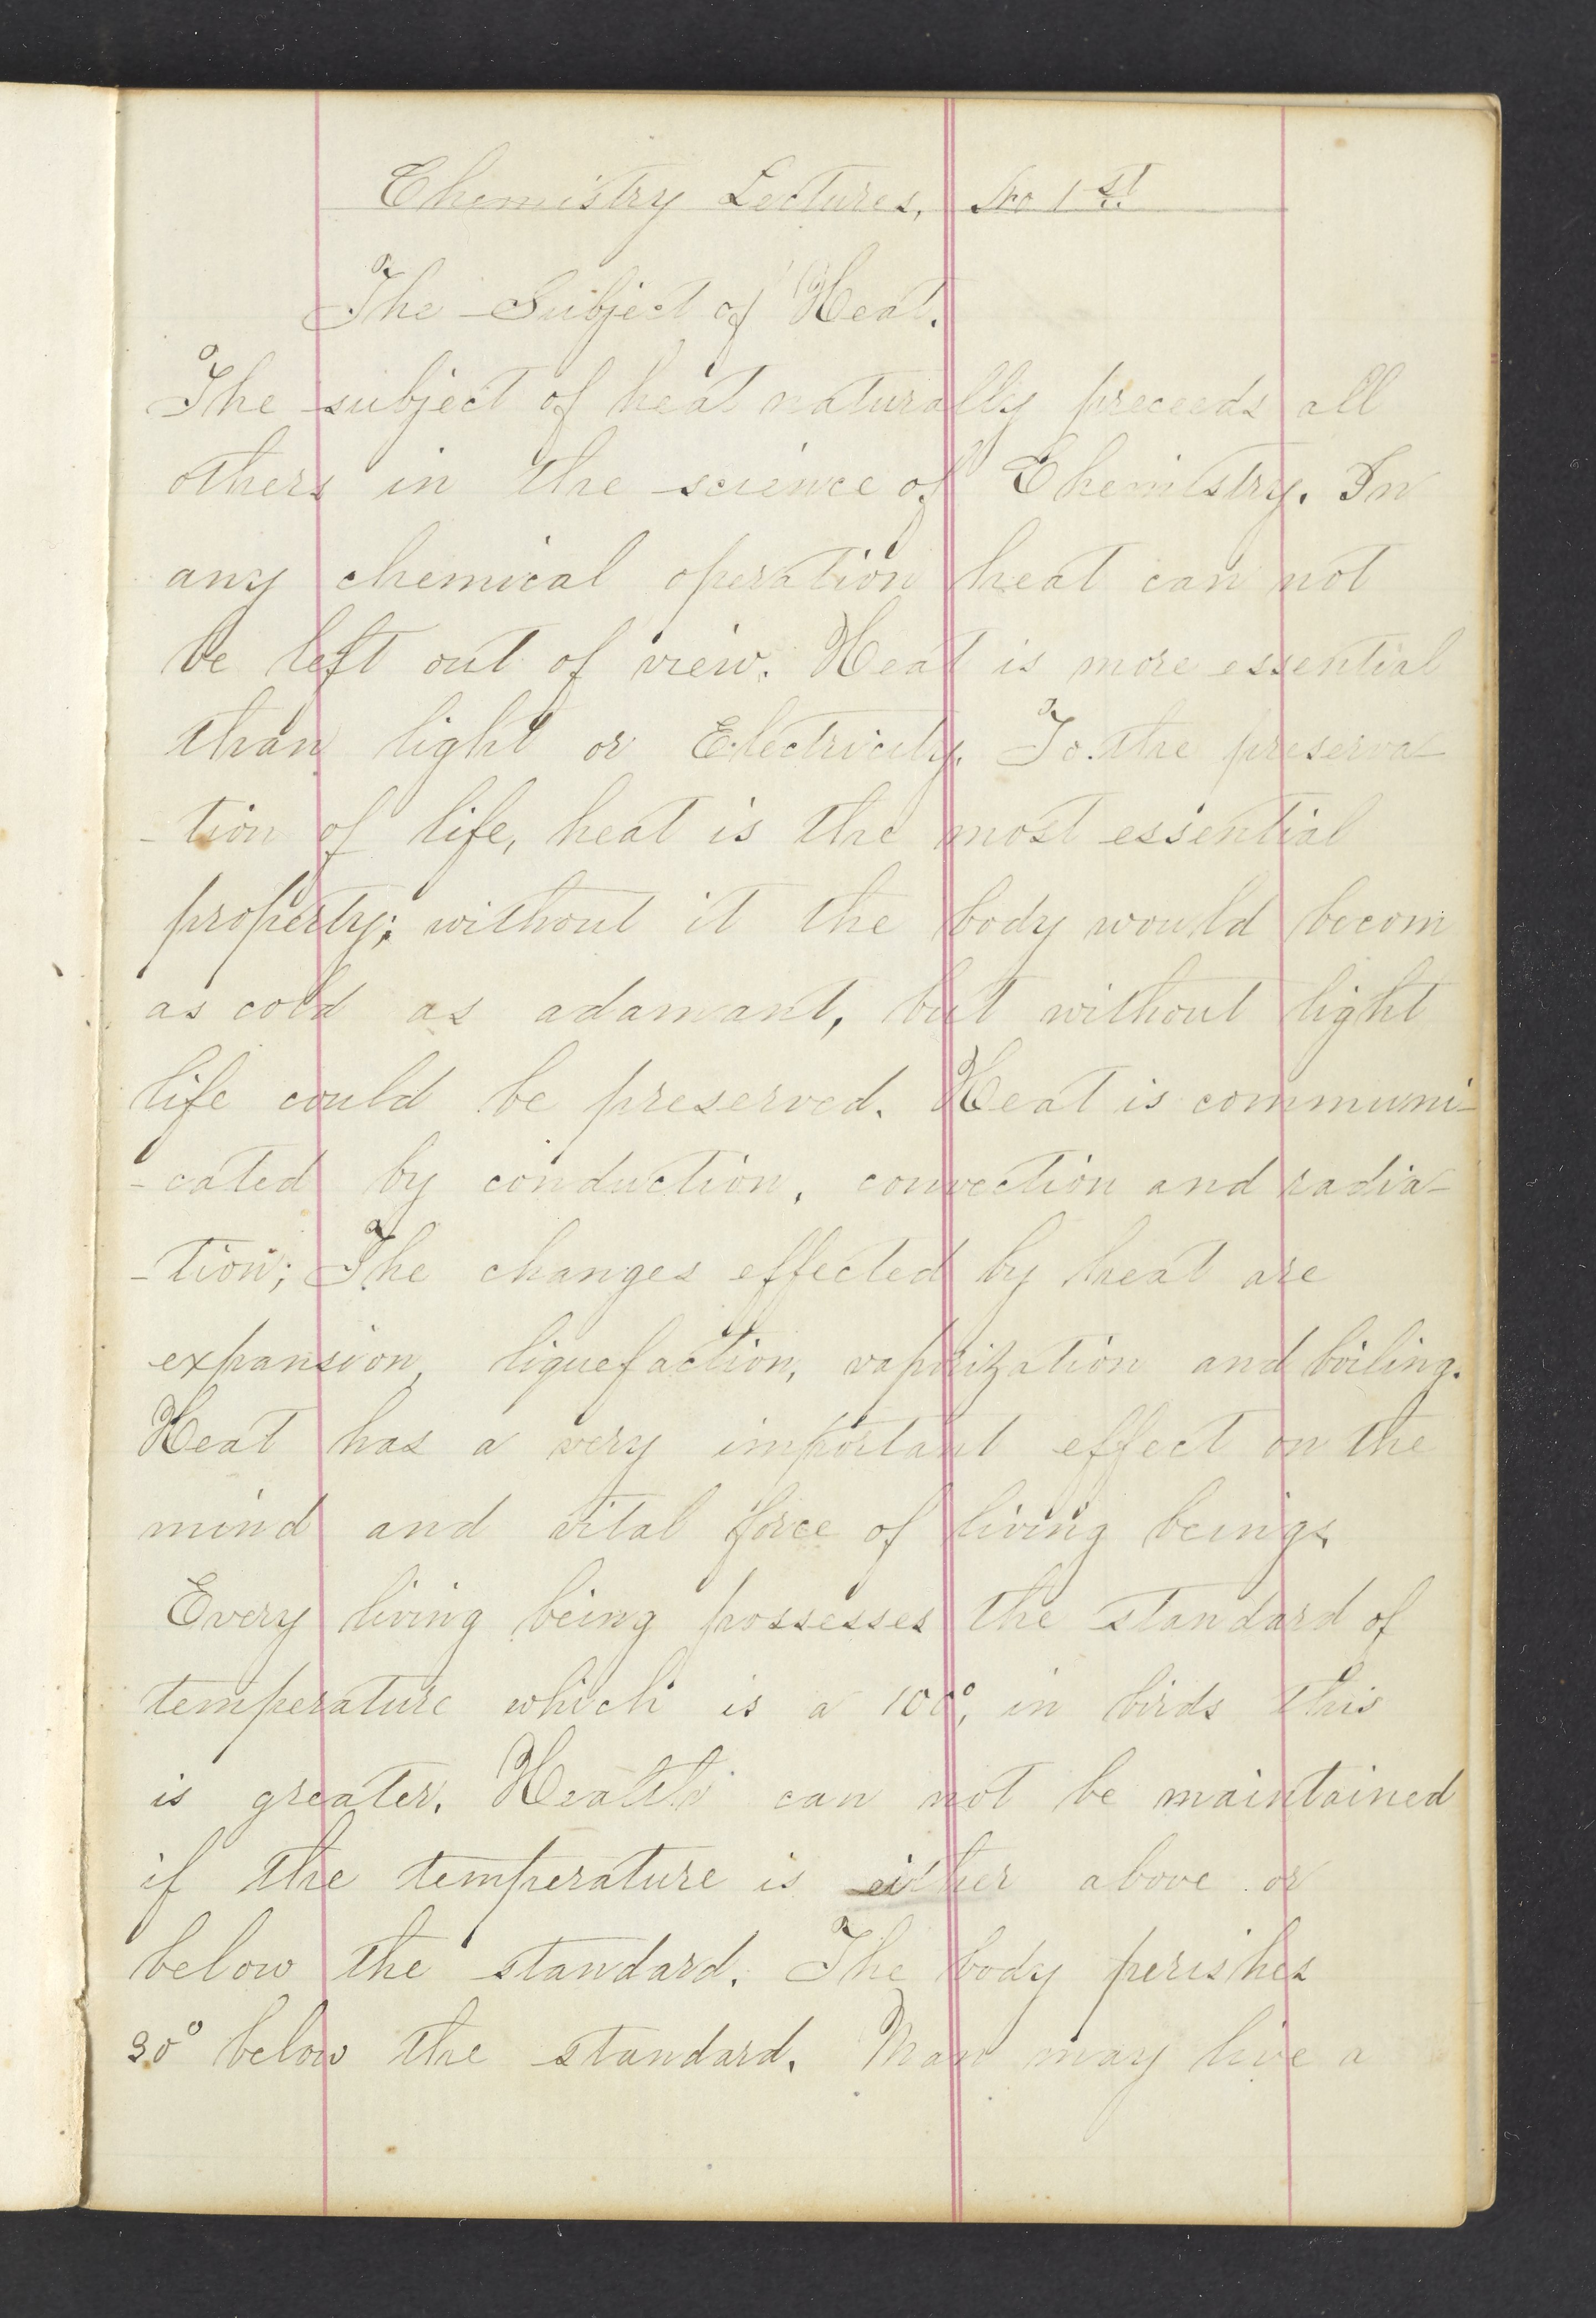 Chemistry Lectures, No 1st.
The Subject of Heat.
The subject of heat naturally preceeds all
others in the science of Chemistry. In
any chemical operation heat can not
be left out of view. Heat is more essential
than light or Electricity. To the preserva-
-tion of life, heat is the most essential
property; without it the body would becom
as cold as adamant, but without light
life could be preserved. Heat is communi-
-cated by conduction, convection and radia-
-tion; The changes effected by heat are
expansion, liquefaction, vaporization and boiling.
Heat has a very important effect on the
mind and vital force of living beings
Every living being possesses the standard of
temperature which is a 100°, in birds this
is greater. Health can not be maintained
if the temperature is either above or
below the standard. The body perishes
30° below the standard. Man may live a